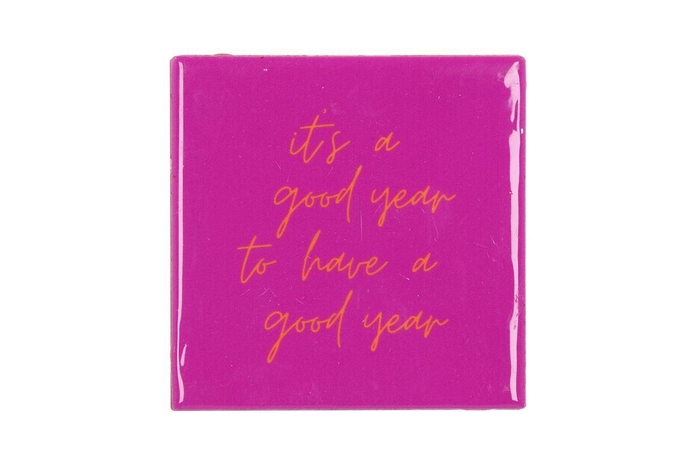 it's a
good year
to have a
good year